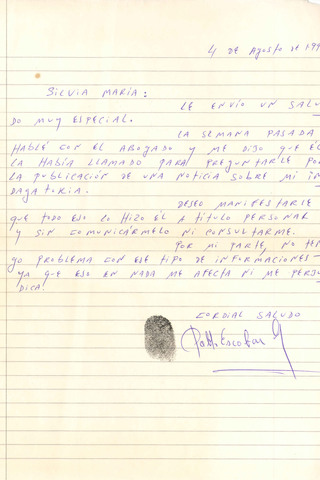 4 DE AGOSTO DE 199
SILVIA MARÍA:
LE ENVÍO UN SALU
DO MUY ESPECIAL.
LA SEMANA PASADA
HABLÉ CON EL ABOGADO Y ME DIJO QUE ÉL
LA HABÍA LLAMADO PARA PREGUNTARLE PO
LA PUBLICACIÓN DE UNA NOTICIA SOBRE MI IN
DAGATORIA.
DESEO MANIFESTARLE
QUE TODO ESO LO HIZO ÉL A TÍTULO PERSONAL
Y SIN COMUNICÁRMELO NI CONSULTARME.
POR MI PARTE, NO TEN
GO PROBLEMA CON ESE TIPO DE INFORMACIONES
YA QUE ESO EN NADA ME AFECTA NI ME PERJU
DICA.
CORDIAL SALUDO
Pablo Escobar G